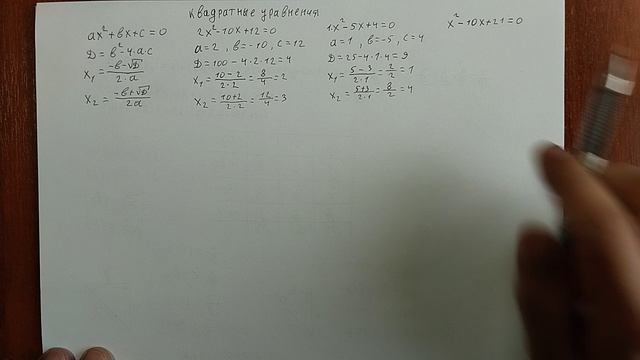 квадратные уравнения
ax²+bx+c=0
D=b²-4·a·c
x₁=(-b-√D)/(2·a)
x₂=(-b+√D)/(2a)
2x²-10x+12=0
a=2, b=-10, c=12
D=100-4·2·12=4
x₁=(10-2)/(2·2)=8/4=2
x₂=(10+2)/(2·2)=12/4=3
1x²-5x+4=0
a=1, b=-5, c=4
D=25-4·1·4=9
x₁=(5-3)/(2·1)=2/2=1
x₂=(5+3)/(2·1)=8/2=4
x²-10x+21=0